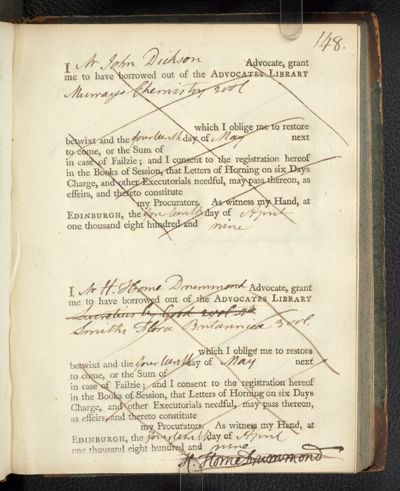 148.
I Mr John Dickson Advocate, grant
me to have borrowed out of the ADVOCATES LIBRARY
Murrays Chemistry 3 vol
which I oblige me to restore
betwixt and the fourteenth day of May next
to come, or the Sum of
in case of Failzie; and I consent to the registration hereof
in the Books of Session, that Letters of Horning on six Days
Charge, and other Executorials needful, may pass thereon, as
effeirs, and thereto constitute
my Procurators. As witness my Hand, at
EDINBURGH, the fourteenth day of April
one thousand eight hundred and nine
I Mr H. Home Drummond Advocate, grant
me to have borrowed out of the ADVOCATES LIBRARY
Lucretius by Good 2 vol
Smiths Flora Britannica 3 vol.
which I oblige me to restore
betwixt and the fourteenth day of May next
to come, or the Sum of
in case of Failzie; and I consent to the registration hereof
in the Books of Session, that Letters of Horning on six Days
Charge, and other Executorials needful, may pass thereon,
as effeirs, and thereto constitute
my Procurators. As witness my Hand, at
EDINBURGH, the fourteenth day of April
one thousand eight hundred and nine
H. Home Drummond